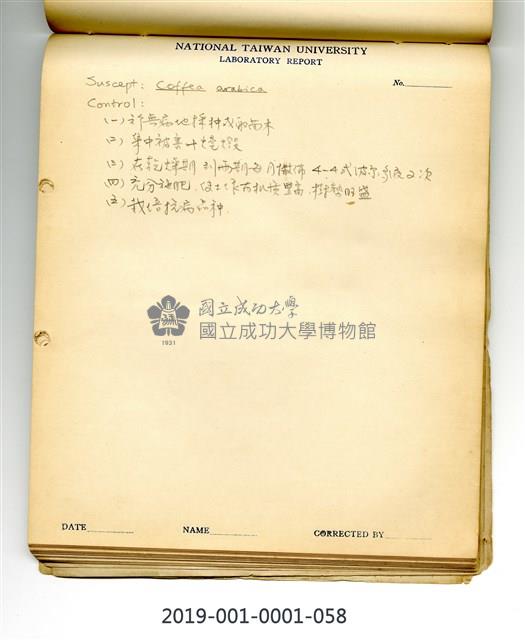 NATIONAL TAIWAN UNIVERSITY
LABORATORY REPORT
No.
Suscept: Coffea arabica
Control:
(一) 無病地採种或取苗木
(二) 集中被害葉燒燬
(三) 在乾燥期到雨期每月撒佈 4-4式波尔多液2次
(四) 充分施肥, 使土壤有机質豐富, 樹勢旺盛
(五) 栽倍抗病品种.
國立成功大學
國立成功大學博物館
1931
DATE
NAME
CORRECTED BY
2019-001-0001-058